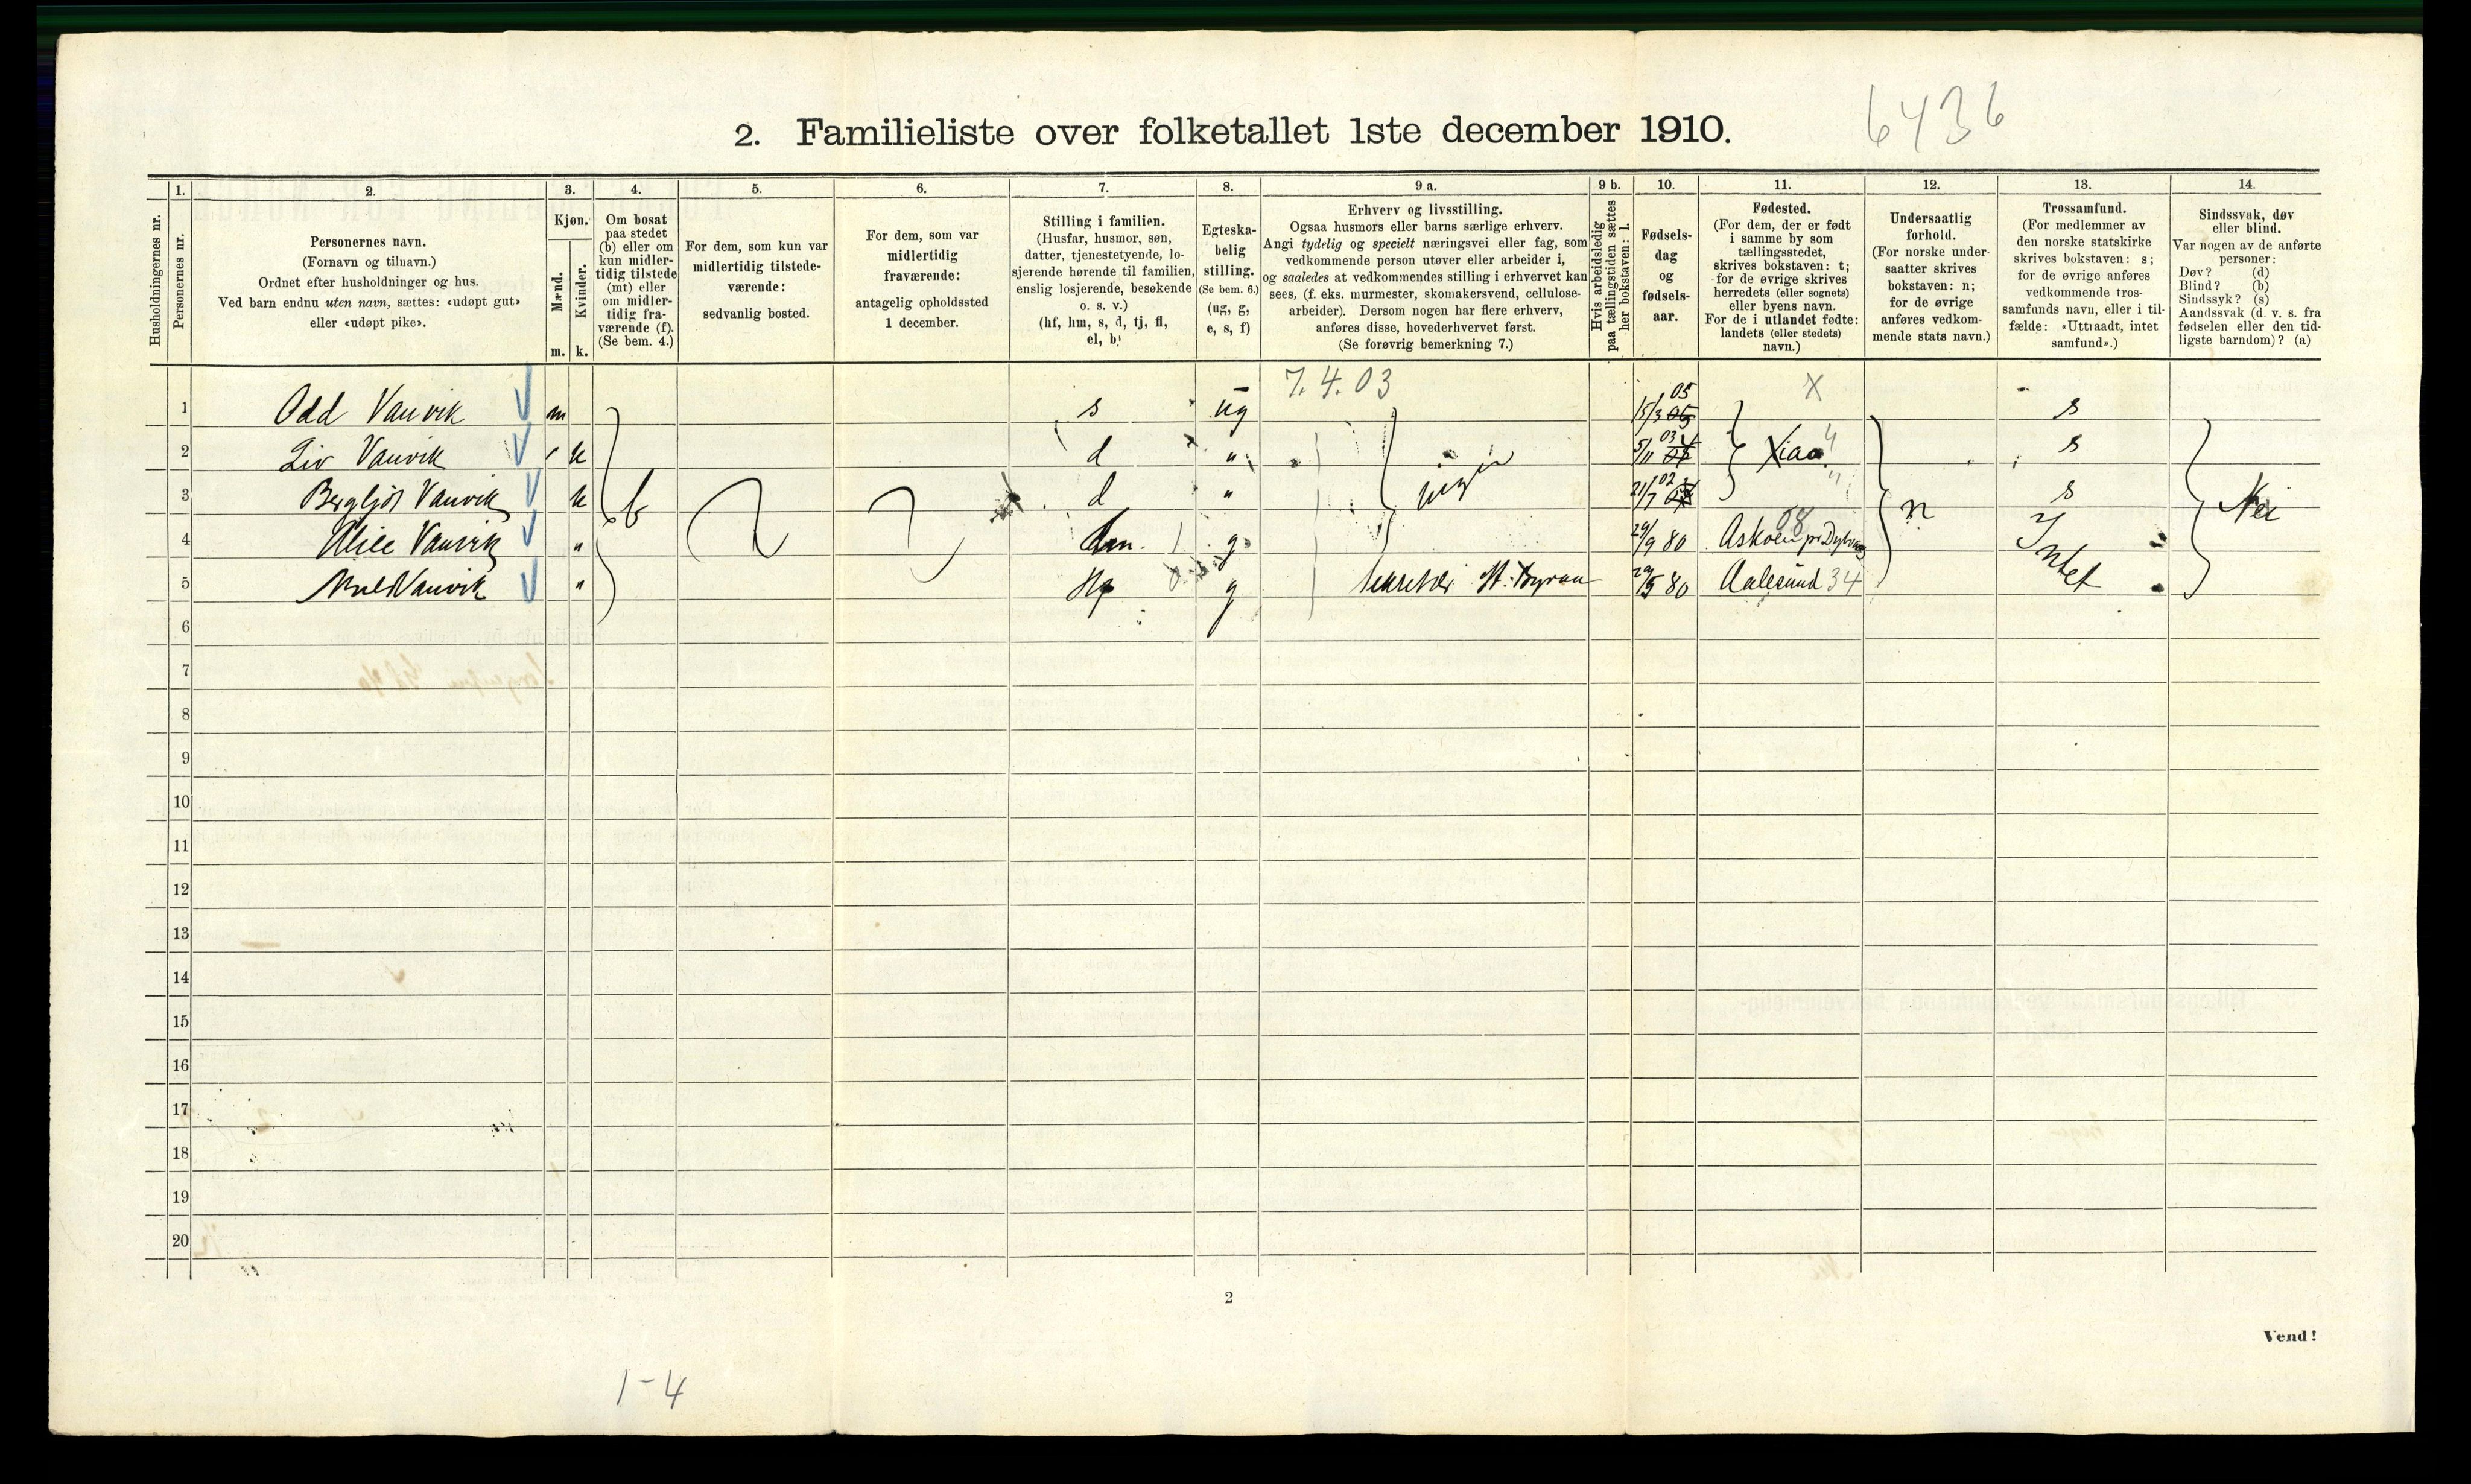 6436
2. Familieliste over folketallet 1ste december 1910.
Husholdningernes nr.
1. Personernes nr.
2. Personernes navn.
(Fornavn og tilnavn.)
Ordnet efter husholdninger og hus.
Ved barn endnu uten navn, sættes: «udøpt gut»
eller «udøpt pike».
3. Kjøn.
Mænd. m.
Kvinder. k.
4. Om bosat
paa stedet
(b) eller om
kun midler-
tidig tilstede
(mt) eller
om midler-
tidig fra-
værende (f).
(Se bem. 4.)
5. For dem, som kun var
midlertidig tilstede-
værende:
sedvanlig bosted.
6. For dem, som var
midlertidig
fraværende:
antagelig opholdssted
1 december.
7. Stilling i familien.
(Husfar, husmor, søn,
datter, tjenestetyende, lo-
sjerende hørende til familien,
enslig losjerende, besøkende
o. s. v.)
(hf, hm, s, d, tj, fl,
el, b)
8. Egteska-
belig
stilling.
(Se bem. 6.)
(ug, g,
e, s, f)
9 a. Erhverv og livsstilling.
Ogsaa husmors eller barns særlige erhverv.
Angi tydelig og specielt næringsvei eller fag, som
vedkommende person utøver eller arbeider i,
og saaledes at vedkommendes stilling i erhvervet kan
sees, (f. eks. murmester, skomakersvend, cellulose-
arbeider). Dersom nogen har flere erhverv,
anføres disse, hovederhvervet først.
(Se forøvrig bemerkning 7.)
9 b. Hvis arbeidsledig
paa tællingstiden sættes
her bokstaven: l.
10. Fødsels-
dag
og
fødsels-
aar.
11. Fødested.
(For dem, der er født
i samme by som
tællingsstedet,
skrives bokstaven: t;
for de øvrige skrives
herredets (eller sognets)
eller byens navn.
For de i utlandet fødte:
landets (eller stedets)
navn.)
12. Undersaatlig
forhold.
(For norske under-
saatter skrives
bokstaven: n;
for de øvrige
anføres vedkom-
mende stats navn.)
13. Trossamfund.
(For medlemmer av
den norske statskirke
skrives bokstaven: s;
for de øvrige anføres
vedkommende tros-
samfunds navn, eller i til-
fælde: «Uttraadt, intet
samfund».)
14. Sindssvak, døv
eller blind.
Var nogen av de anførte
personer:
Døv? (d)
Blind? (b)
Sindssyk? (s)
Aandssvak (d. v. s. fra
fødselen eller den tid-
ligste barndom)? (a)
7.4.03
1 Odd Vanvik m s ug 15/3 05 s
2 Liv Vanvik k d " 5/11 03 Xiaa s
3 Bergljot Vanvik k b d " ingen 21/7 02 n s Nei
4 Alice Vanvik " hm g 29/9 80 Askøen pr Dybvaag 08 Intet
5 Vanvik " g Sekretær 80 Aalesund 34
6
7
8
9
10
11
12
13
14
15
16
17
18
19
20
2
Vend!
1-4